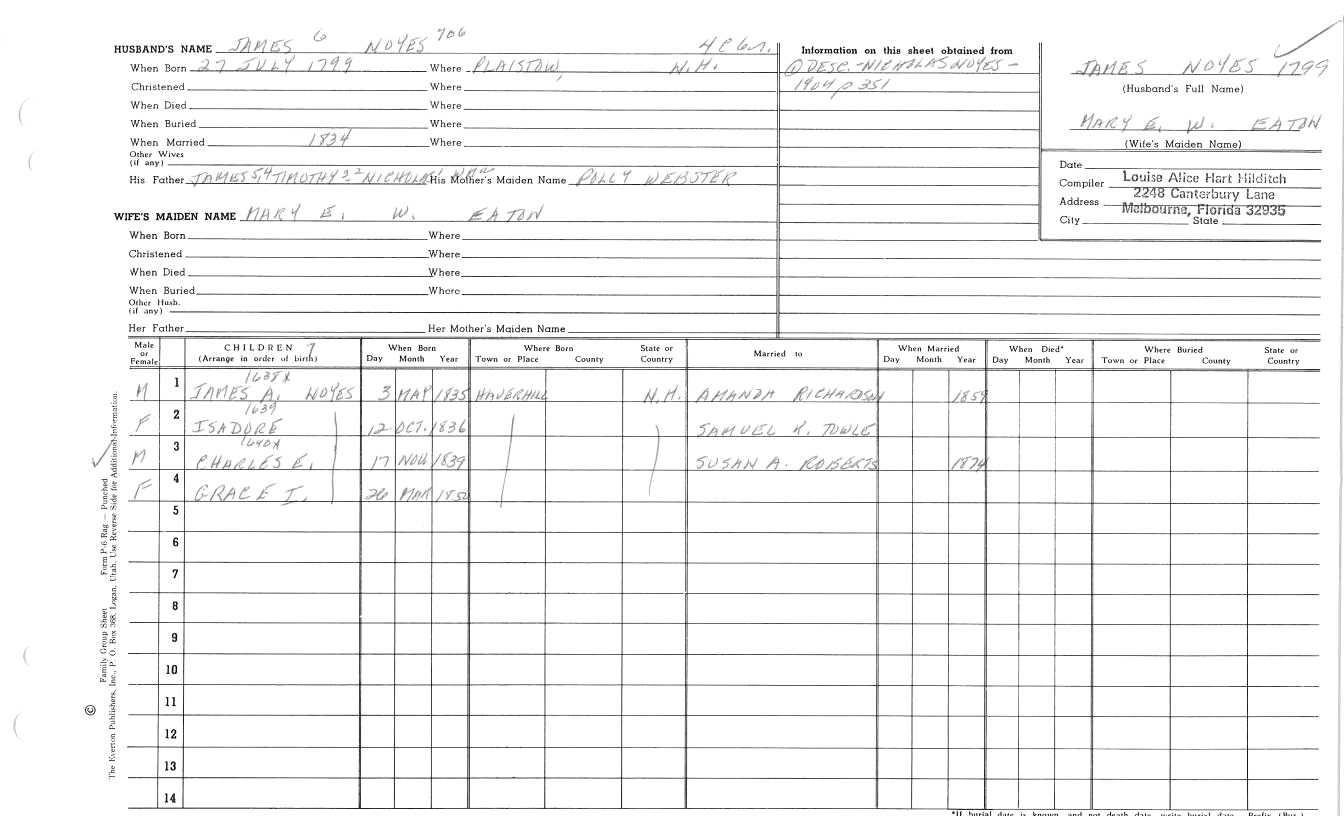 HUSBAND'S NAME JAMES 6 NOYES 706 4 Ch.
When Born 27 JULY 1799 Where PLAISTOW, N.H.
Christened Where
When Died Where
When Buried Where
When Married 1834 Where
Other Wives
(if any)
His Father JAMES 5,4 TIMOTHY 3-2 NICHOLAS His Mother's Maiden Name POLLY WEBSTER
Information on this sheet obtained from
DESC. - NICHOLAS NOYES -
1904 p 351
JAMES NOYES 1799
(Husband's Full Name)
MARY E. W. EATON
(Wife's Maiden Name)
Date
Compiler Louise Alice Hart Hilditch
Address 2248 Canterbury Lane
Melbourne, Florida 32935
City State
WIFE'S MAIDEN NAME MARY E. W. EATON
When Born Where
Christened Where
When Died Where
When Buried Where
Other Husb.
(if any)
Her Father Her Mother's Maiden Name
Male or Female CHILDREN 7 (Arrange in order of birth) When Born Day Month Year Where Born Town or Place County State or Country Married to When Married Day Month Year When Died* Day Month Year Where Buried Town or Place County State or Country
1638x
M 1 JAMES A. NOYES 3 MAY 1835 HAVERHILL N.H. AMANDA RICHARDSON 1859
1639
F 2 ISADORE 12 OCT. 1836 SAMUEL K. TOWLE
1640x
M 3 CHARLES E. 17 NOV 1839 SUSAN A. ROBERTS 1874
F 4 GRACE I. 26 MAR 1850
5
6
7
8
9
10
11
12
13
14
© Family Group Sheet Form P-6-Rag — Punched
The Everton Publishers, Inc., P. O. Box 368, Logan, Utah. Use Reverse Side for Additional Information.
*If burial date is known, and not death date, write burial date